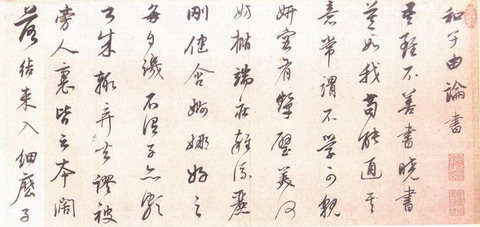 和子由論書
吾雖不善書曉書
莫如我苟能通其
意常謂不學可貌
妍容有顰璧美何
妨橢端莊雜流麗
剛健含婀娜好之
每自譏不謂子亦頗
書成輒弃去謬被
旁人裹皆云本闊
落結束入細麼子